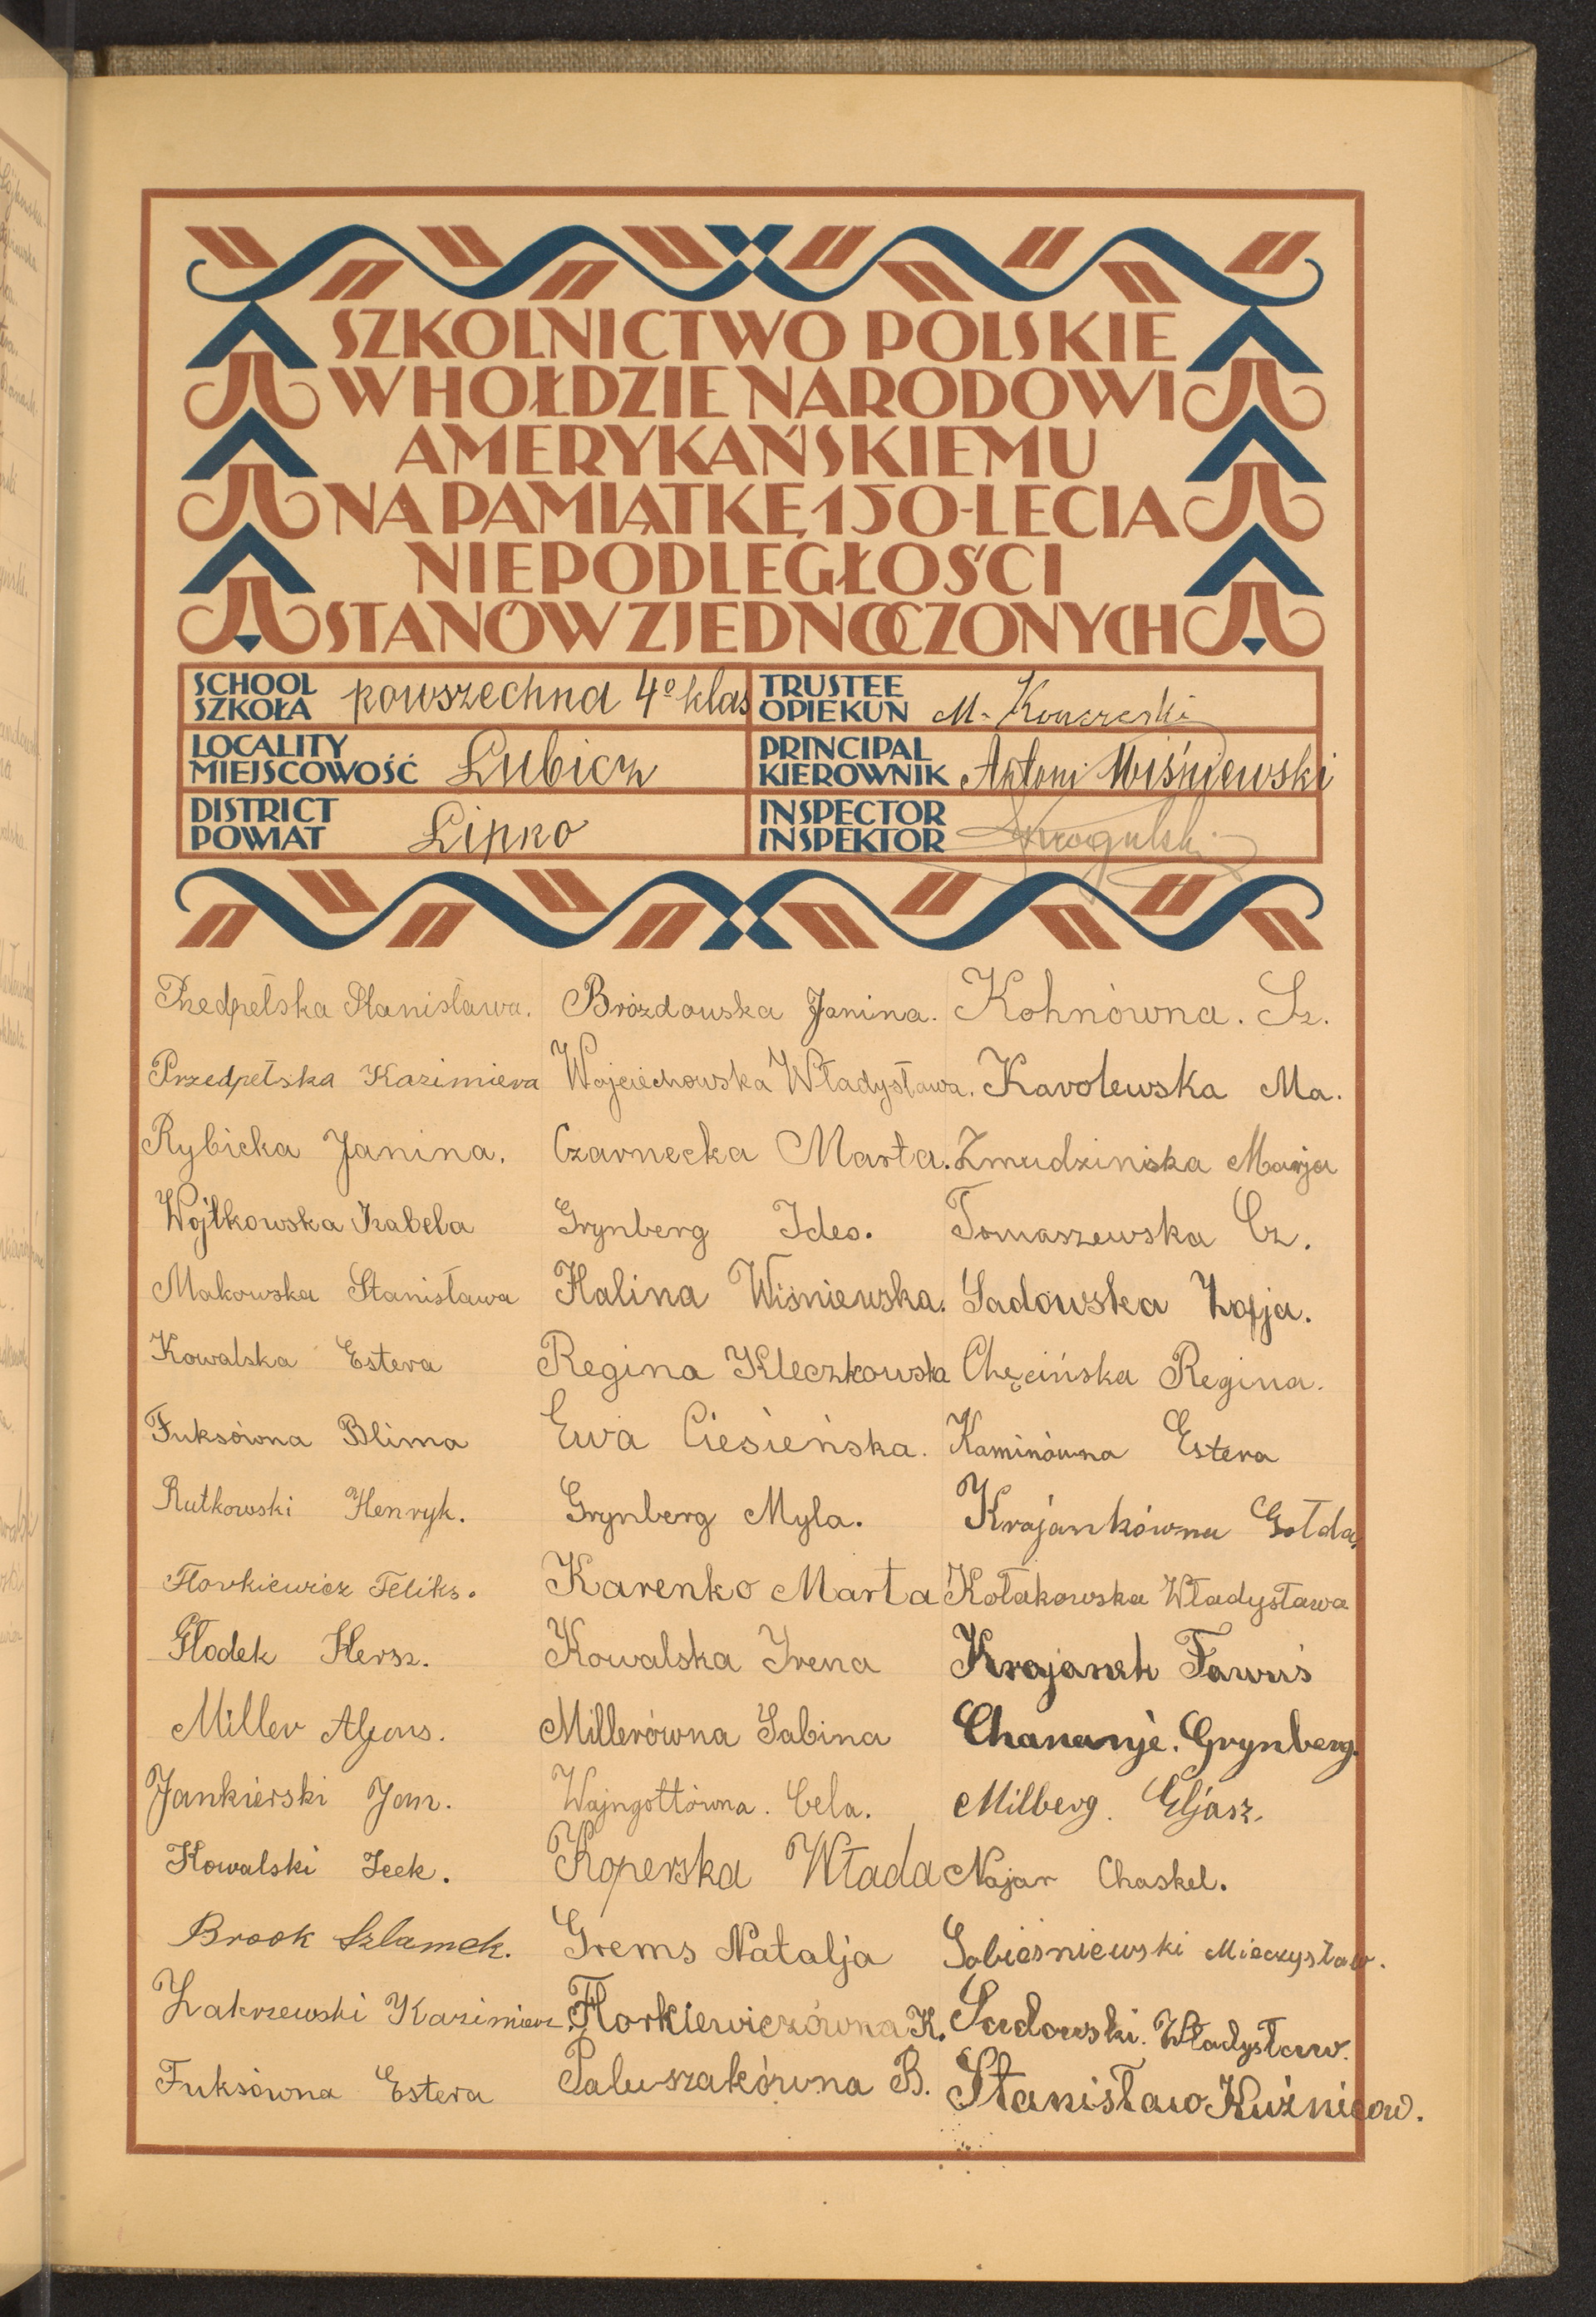 SZKOLNICTWO POLSKIE
W HOŁDZIE NARODOWI
AMERYKAŃSKIEMU
NA PAMIĄTKĘ 150-LECIA
NIEPODLEGŁOŚCI
STANÓW ZJEDNOCZONYCH
SCHOOL
SZKOŁA
powszechna 4º klas
TRUSTEE
OPIEKUN
M.
LOCALITY
MIEJSCOWOŚĆ
Lubicz
PRINCIPAL
KIEROWNIK
Antoni Wiśniewski
DISTRICT
POWIAT
Lipno
INSPECTOR
INSPEKTOR
Przedpełska Stanisława.
Przedpełska Kazimiera
Rybicka Janina.
Wojtkowska Izabela
Makowska Stanisława
Kowalska Estera
Fuksówna Blima
Rutkowski Henryk.
Florkiewicz Feliks.
Płodek Hersz.
Miller Alfons.
Jankierski Jan.
Kowalski Icek.
Brook Szlamek.
Zakrzewski Kazimierz.
Fuksówna Estera
Brózdowska Janina.
Wojciechowska Władysława.
Czarnecka Marta.
Grynberg Ides.
Halina Wiśniewska.
Regina Kleczkowska
Ewa Ciesieńska.
Grynberg Myla.
Karenko Marta
Kowalska Irena
Millerówna Sabina
Wajngottówna. Cela.
Koperska Włada
Grems Natalja
Florkiewiczówna K.
Paluszakówna B.
Kohnówna. Sz.
Karolewska Ma.
Żmudzinska Marja
Tomaszewska Cz.
Sadowska Zofja.
Chęcińska Regina.
Kaminówna Estera
Krajankówna Gołda.
Kołakowska Władysława
Krajanek
Chananje. Grynberg.
Milberg. Eljasz.
Najar Chaskel.
Sobieśniewski Mieczysław.
Sadowski. Władysław.
Stanisław Kuźnicow.